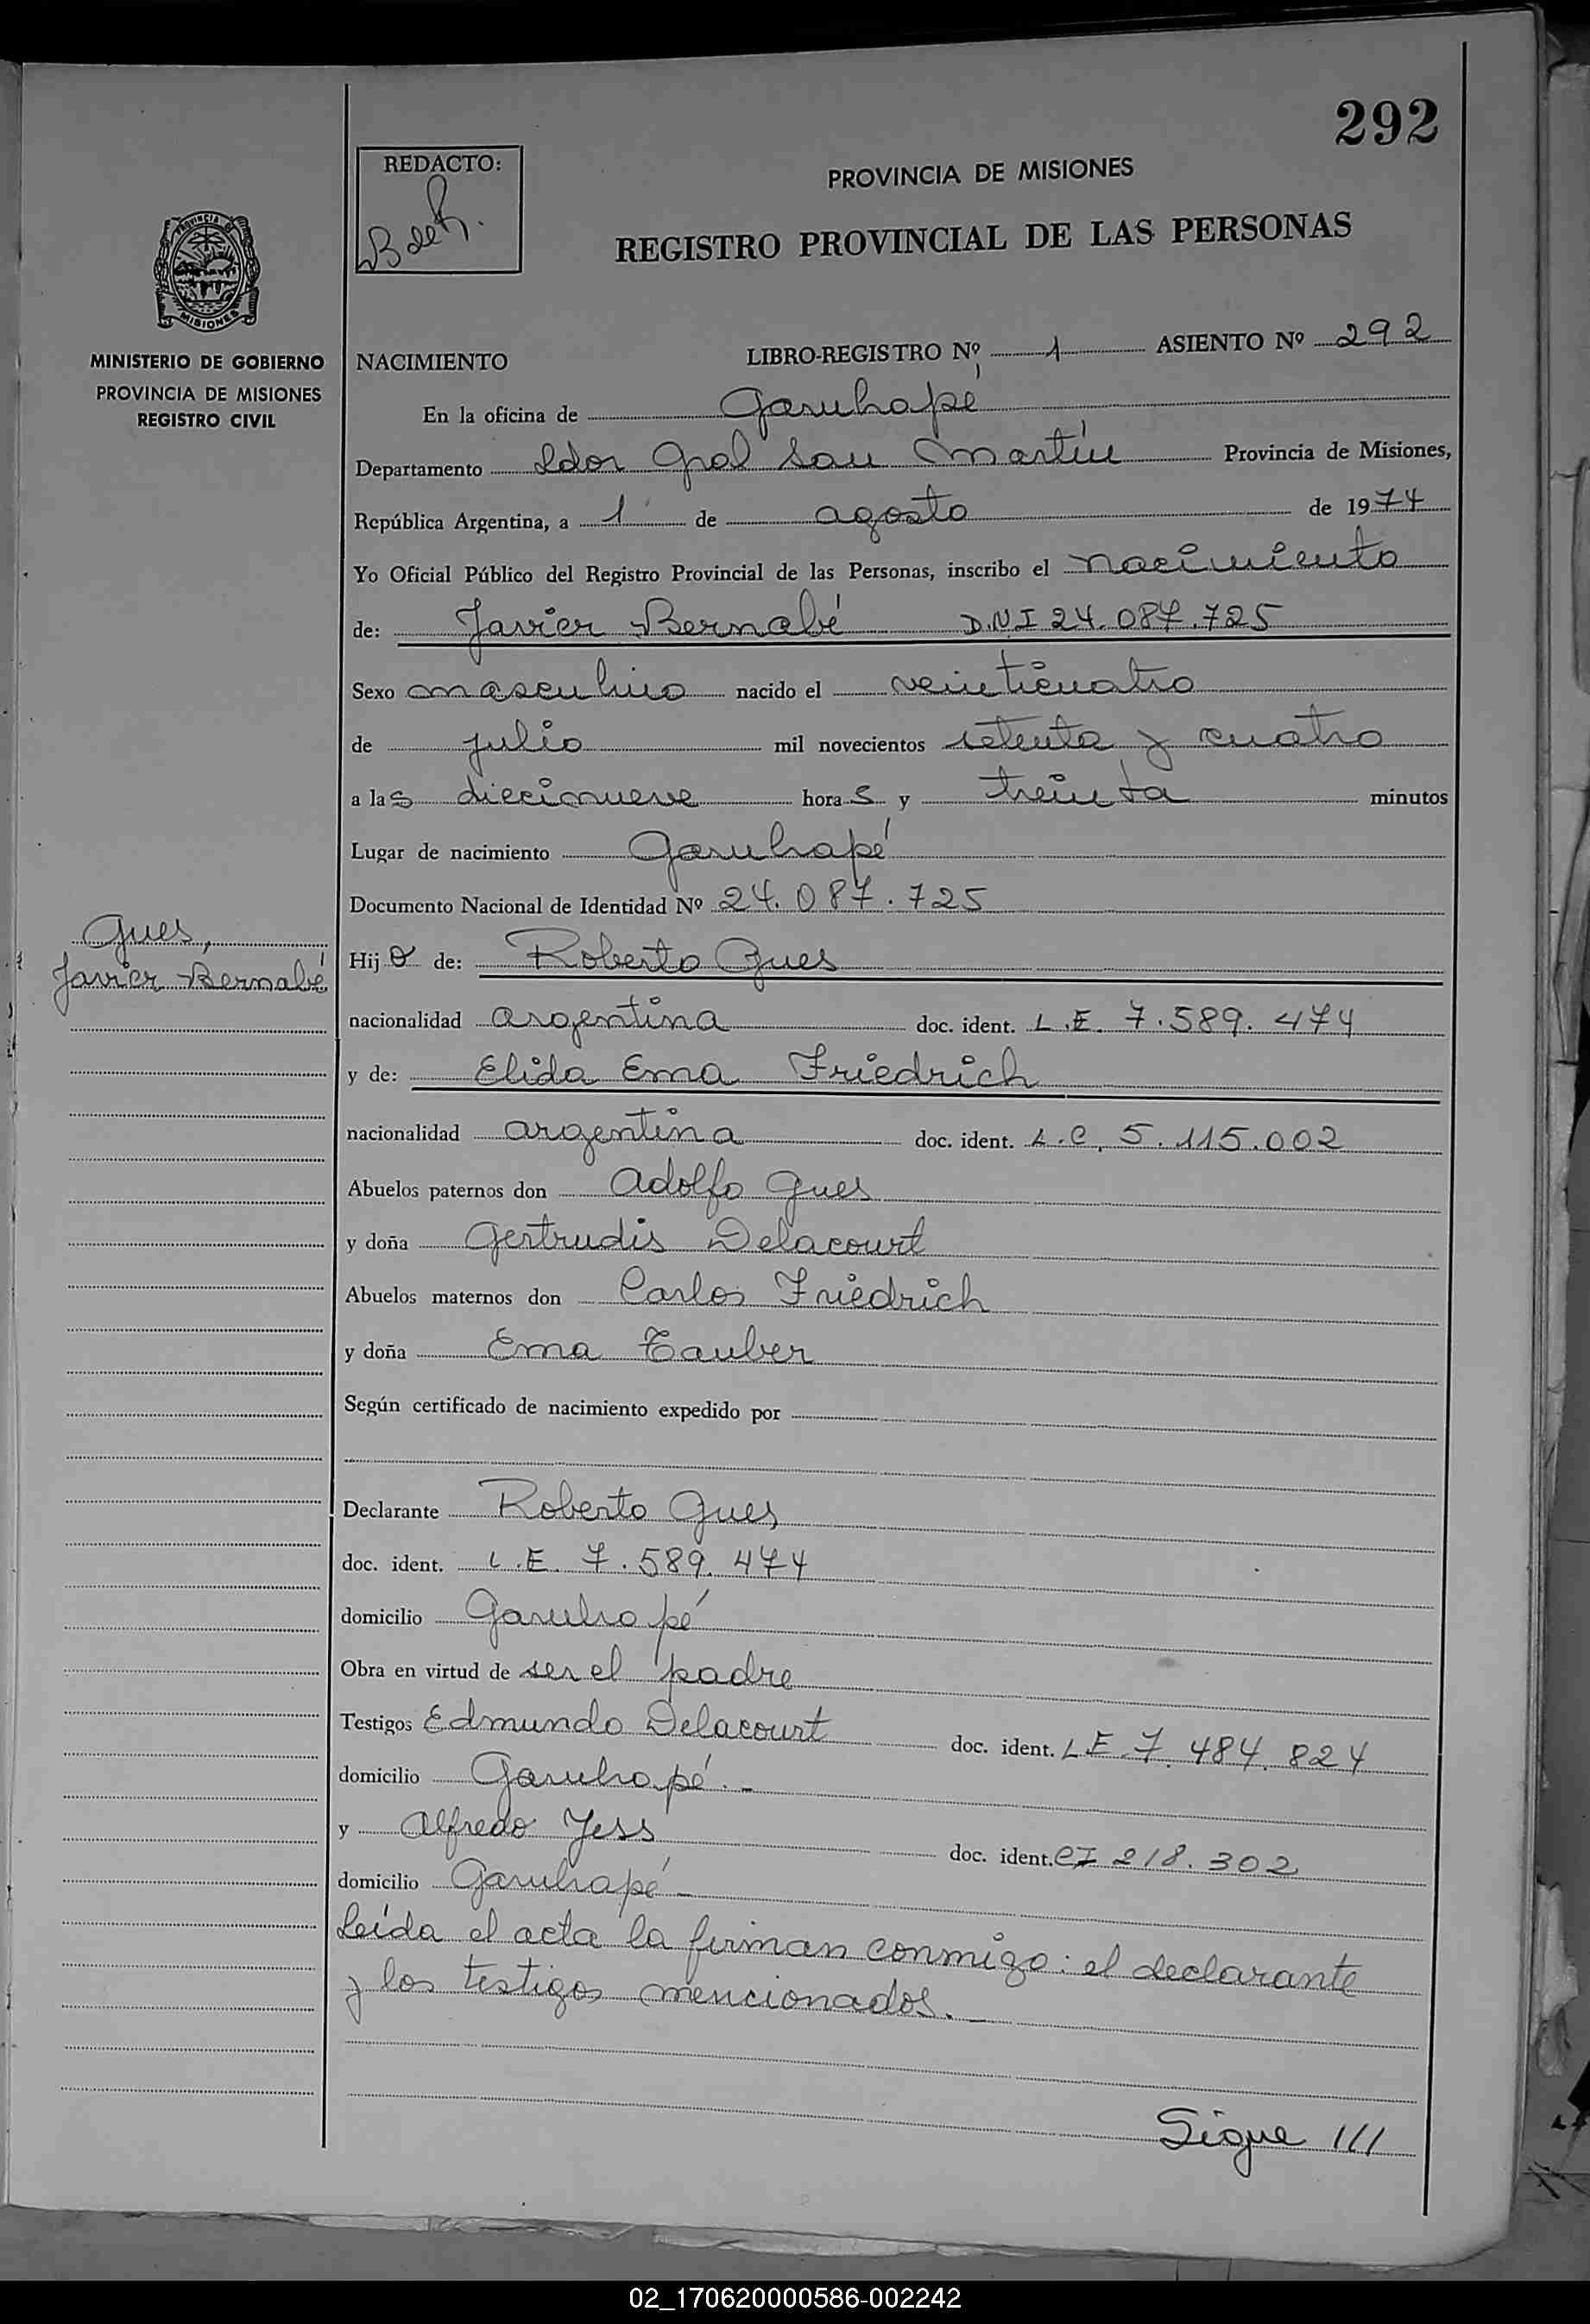 292
REDACTO:
PROVINCIA DE MISIONES
REGISTRO PROVINCIAL DE LAS PERSONAS
PROVINCIA DE
MISIONES
MINISTERIO DE GOBIERNO
PROVINCIA DE MISIONES
REGISTRO CIVIL
NACIMIENTO LIBRO-REGISTRO Nº 1 ASIENTO Nº 292
En la oficina de Garuhapé
Departamento Ldor Gral San Martín Provincia de Misiones,
República Argentina, a 1 de agosto de 1974
Yo Oficial Público del Registro Provincial de las Personas, inscribo el nacimiento
de: Javier Bernabé D.N.I 24.087.725
Sexo masculino nacido el veinticuatro
de julio mil novecientos setenta y cuatro
a las diecinueve horas y treinta minutos
Lugar de nacimiento Garuhapé
Documento Nacional de Identidad Nº 24.087.725
Gues,
Javier Bernabé
Hijo de: Roberto Gues
nacionalidad argentina doc. ident. L.E. 7.589.474
y de: Elida Ema Friedrich
nacionalidad argentina doc. ident. L.C. 5.115.002
Abuelos paternos don Adolfo Gues
y doña Gertrudis Delacourt
Abuelos maternos don Carlos Friedrich
y doña Ema Tauber
Según certificado de nacimiento expedido por
Declarante Roberto Gues
doc. ident. L.E. 7.589.474
domicilio Garuhapé
Obra en virtud de ser el padre
Testigos Edmundo Delacourt doc. ident. L.E. 7.484.824
domicilio Garuhapé.-
y Alfredo Yess doc. ident. CI 218.302
domicilio Garuhapé-
Leída el acta la firman conmigo: el declarante
y los testigos mencionados.-
Sigue ///
02_170620000586-002242